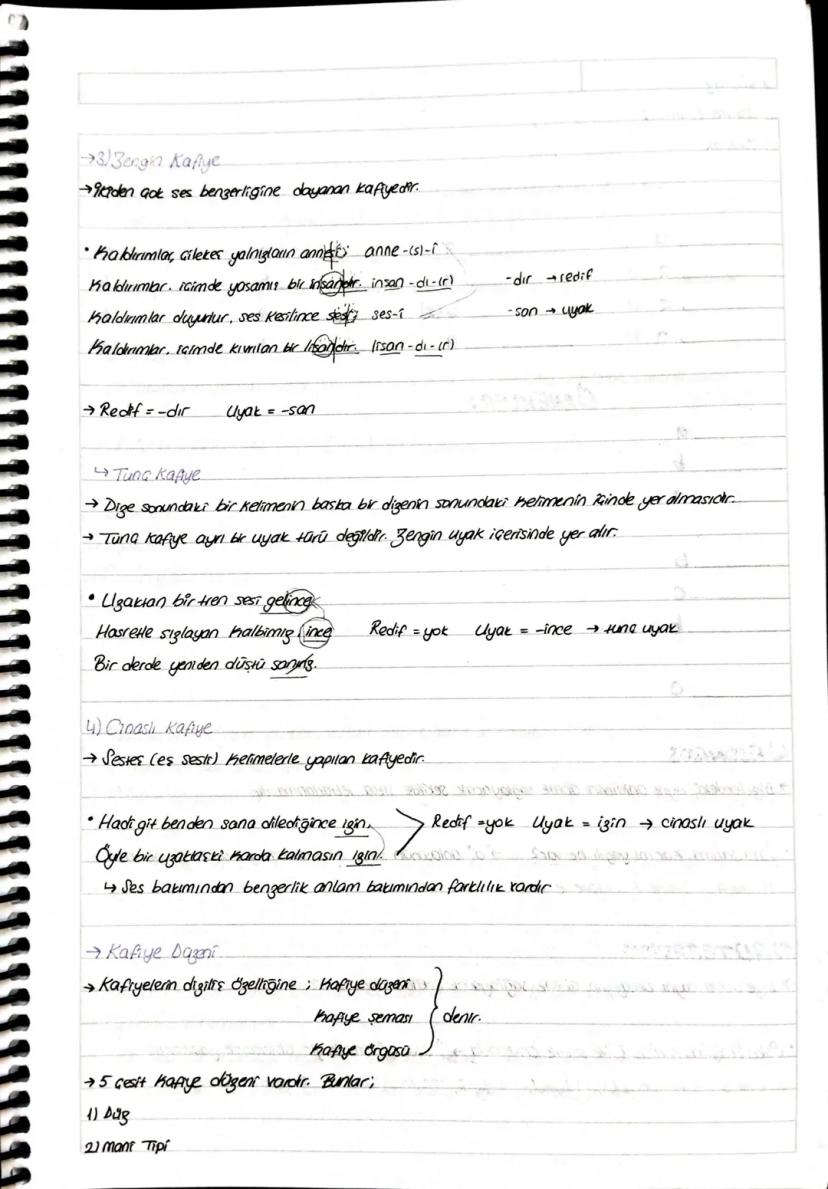 →3) Zengin Kafiye
→ İkiden çok ses benzerliğine dayanan kafiyedir.
• Kaldırımlar, çilekeş yalnızların annesi; anne-(s)-i
Kaldırımlar, içimde yaşamış bir insandır. insan-dı-(r) -dır → redif
Kaldırımlar duyulur, ses kesilince sesi; ses-i -san → uyak
Kaldırımlar, içimde kıvrılan bir lisandır. lisan-dı-(r)
→ Redif = -dır Uyak = -san
↳ Tunç Kafiye
→ Dize sonundaki bir kelimenin başka bir dizenin sonundaki kelimenin içinde yer almasıdır.
→ Tunç kafiye ayrı bir uyak türü değildir. Zengin uyak içerisinde yer alır.
• Uzaktan bir tren sesi gelince
Hasretle sızlayan kalbimiz, ince Redif = yok Uyak = -ince → tunç uyak
Bir derde yeniden düştü sanırız.
4) Cinaslı Kafiye
→ Sesteş (eş sesli) kelimelerle yapılan kafiyedir.
• Hadi git benden sana dilediğince izin, Redif = yok Uyak = izin → cinaslı uyak
Öyle bir uzaklaş ki karda kalmasın izin.
↳ Ses bakımından benzerlik anlam bakımından farklılık vardır
→ Kafiye Düzeni
→ Kafiyelerin diziliş özelliğine ; Kafiye düzeni
Kafiye şeması denir.
Kafiye örgüsü
→ 5 çeşit kafiye düzeni vardır. Bunlar;
1) Düz
2) Mani Tipi